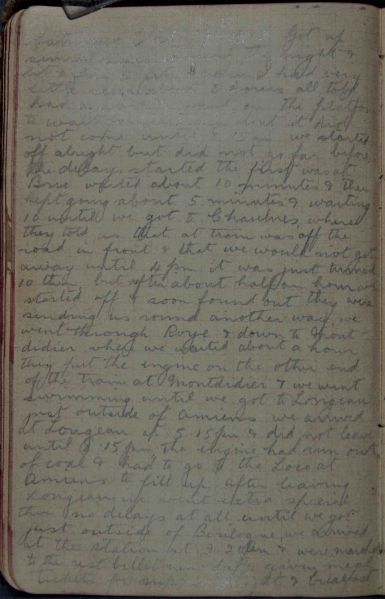 Got up
night &
had very
little all told
had on the platform
to wait but it did
not come until 8 15 am we started
off alright but did not go far before
the delays started the first was at
Brie waited about 10 minutes & then
kept going about 5 minutes & waiting
10 until we got to Chaulnes, where
they told us that a train was off the
road in front & that we would not get
away until 4 pm it was just turned
10 then, but after about half an hour we
started off & soon found out they were
sending us round another way we
went through Roye & down to Mont-
didier where we waited about a hour
they put the engine on the other end
of the train at Montdidier & we went
swimming until we got to Longeau
just outside of Amiens we arrived
at Longeau at 5 15 pm & did not leave
until 15 pm, the engine had run out
of coal & had to go to the Loco at
Amiens to fill up, after leaving
Longeau we went extra special
then no delays at all until we got
just outside of Boulogne, we arrived
at the station at & were marched
to the rest billet near & given meal
tickets for & breakfast